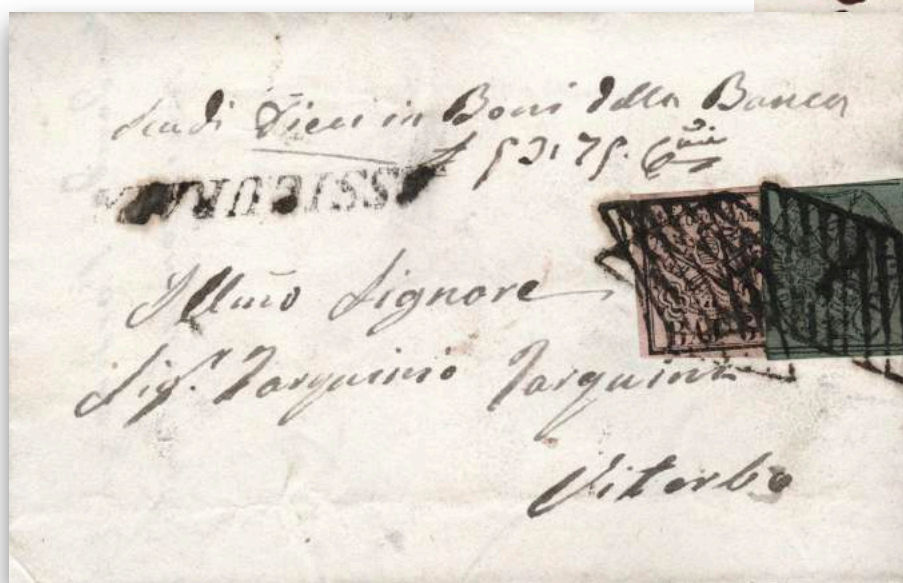 Scudi Dieci in Boni della Banca
ASSICURATA
Illmo Signore
Sigr. Tarquinio Tarquini
Viterbo